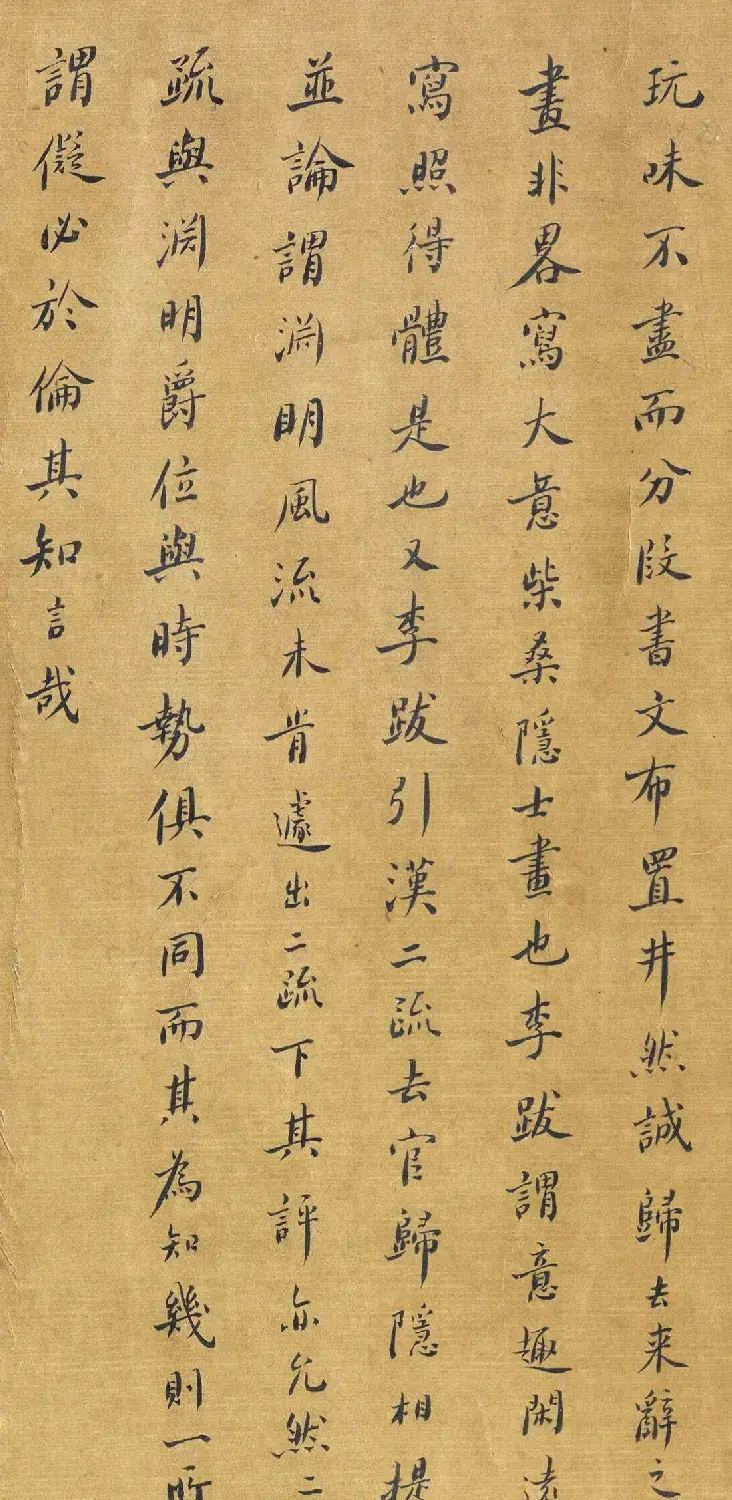 玩味不盡而分段書文布置井然誠歸去来辭之
畫非畧寫大意柴桑隱士畫也李跋謂意趣閑遠
寫照得體是也又李跋引漢二疏去官歸隱相提
並論謂淵明風流未肯遽出二疏下其評亦允然二
疏與淵明爵位與時勢俱不同而其為知幾則一所
謂儗必於倫其知言哉